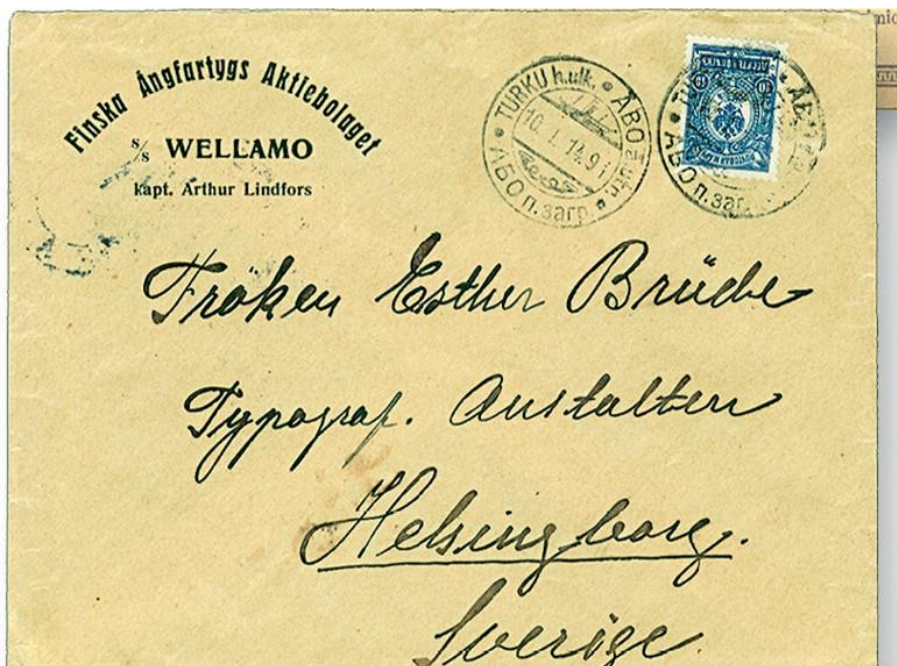 Finska Ångfartygs Aktiebolaget
s/s WELLAMO
kapt. Arthur Lindfors
TURKU h.ulk. • ÅBO
10. I. 14. 9
АБО п. загр.
АБО п. загр.
Fröken Esther Brüde
Typograf. Anstalten
Helsingborg.
Sverige